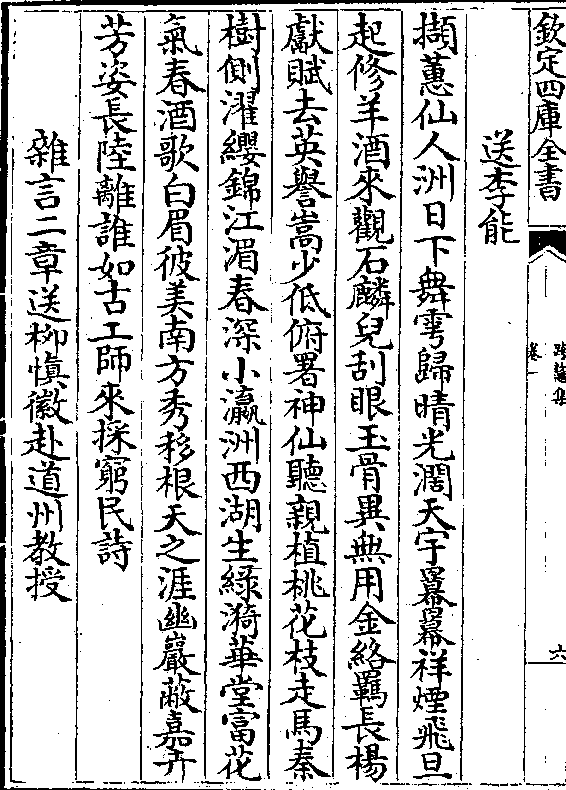 欽定四庫全書
卷一
六
送李能
擷蕙仙人洲日下舞雩歸晴光濶天宇羃羃祥煙飛旦
起修羊酒來觀石麟兒刮眼玉骨異無用金絡羈長楊
獻賦去英譽嵩少低俯署神仙聽親植桃花枝走馬秦
樹側濯纓錦江湄春深小瀛洲西湖生緑漪華堂富花
氣春酒歌白眉彼美南方秀移根天之涯幽巖蔽嘉卉
芳姿長陸離誰如古工師來採窮民詩
雜言二章送柳慎徽赴道州教授